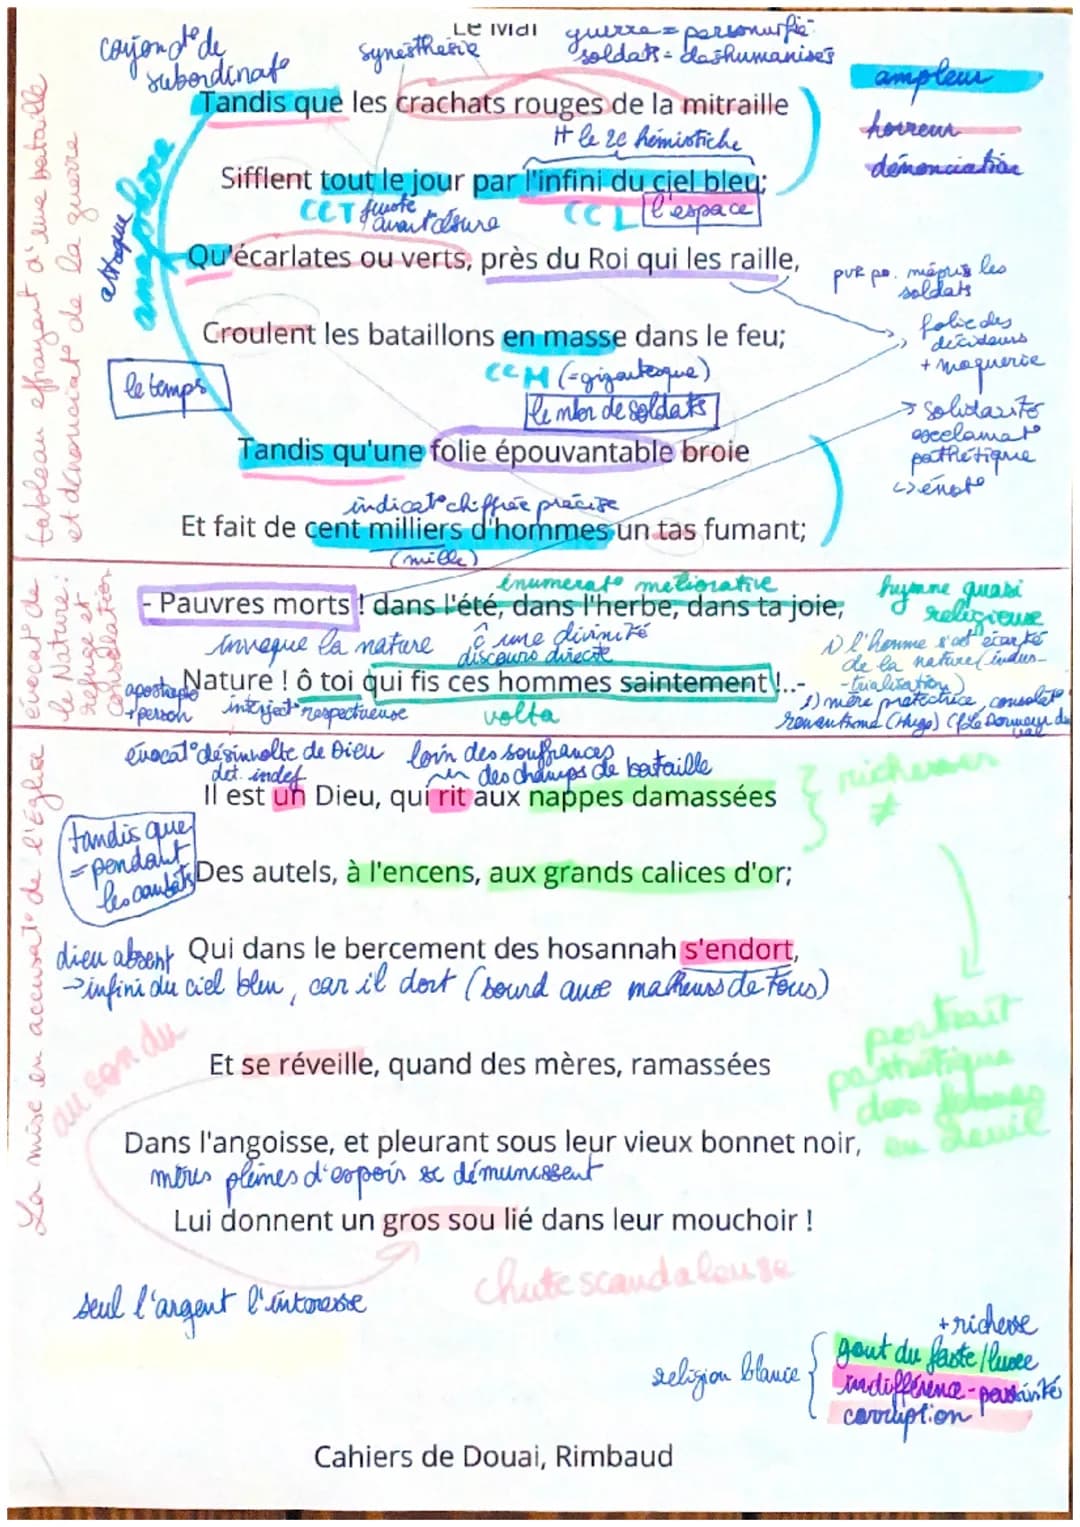 Le Mal
conjonct° de
subordinat°
synesthésie
guerre = personnifié
soldats = deshumanisés
ampleur
horreur
dénonciation
Tandis que les crachats rouges de la mitraille
+ le 2e hémistiche
Sifflent tout le jour par l'infini du ciel bleu;
CCT
CCL l'espace
attaque
anaphore
Qu'écarlates ou verts, près du Roi qui les raille,
mépris les
soldats
Croulent les bataillons en masse dans le feu;
folie des
décideurs
+ moquerie
CCM (=gigantesque)
le nbr de soldats
le temps
Tandis qu'une folie épouvantable broie
→ solidarité
exclamat°
pathétique
indicat° chiffrée précise
Et fait de cent milliers d'hommes un tas fumant;
(mille)
tableau effrayant d'une bataille
et dénonciat° de la guerre
énumérat° méliorative
hymne quasi
religieuse
- Pauvres morts ! dans l'été, dans l'herbe, dans ta joie,
invoque la nature
c une divinité
discours directe
1) l'homme s'est écarté
de la nature (indus-
-trialisation)
Nature ! ô toi qui fis ces hommes saintement !..-
apostrophe
+ person
interject° respectueuse
volta
mère protectrice, consolat°
romantisme (Hugo) (Le Dormeur du
val
évocat° de
la Nature:
refuge et
consolation
évocat° désinvolte de Dieu
loin des souffrances
det. indef
des champs de bataille
Il est un Dieu, qui rit aux nappes damassées
richesses
≠
tandis que
= pendant
les combats
Des autels, à l'encens, aux grands calices d'or;
dieu absent
Qui dans le bercement des hosannah s'endort,
→ infini du ciel bleu, car il dort (sourd aux malheurs de tous)
au son du
Et se réveille, quand des mères, ramassées
portrait
pathétique
des femmes
en deuil
Dans l'angoisse, et pleurant sous leur vieux bonnet noir,
mères pleines d'espoir se démunissent
Lui donnent un gros sou lié dans leur mouchoir !
La mise en accusat° de l'Église
chute scandaleuse
seul l'argent l'intéresse
+ richesse
religion blamée
gout du faste/luxe
indifférence - passivité
corruption
Cahiers de Douai, Rimbaud